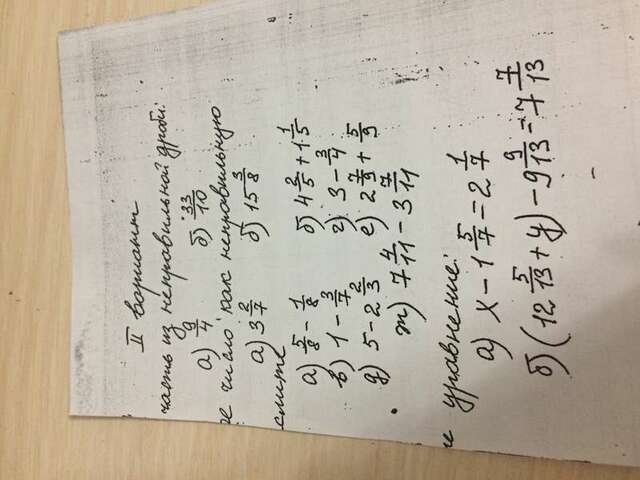 II вариант
часть из неправильной дроби:
а) 9/4 б) 33/10
число как неправильную
а) 3 2/7 б) 15 3/8
слите
а) 5/8 - 1/8 б) 4 2/5 + 1 1/5
в) 1 - 3/7 г) 3 - 3/4
д) 5 - 2 2/3 е) 2 7/9 + 5/9
ж) 7 4/11 - 3 7/11
е уравнение:
а) x - 1 5/7 = 2 1/7
б) (12 5/13 + y) - 9 9/13 = 7 7/13